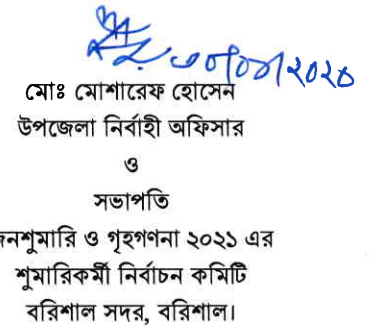 মোঃ মোশারেফ হোসেন
উপজেলা নির্বাহী অফিসার
ও
সভাপতি
নশুমারি ও গৃহগণনা ২০২১ এর
শুমারিকর্মী নির্বাচন কমিটি
বরিশাল সদর, বরিশাল।